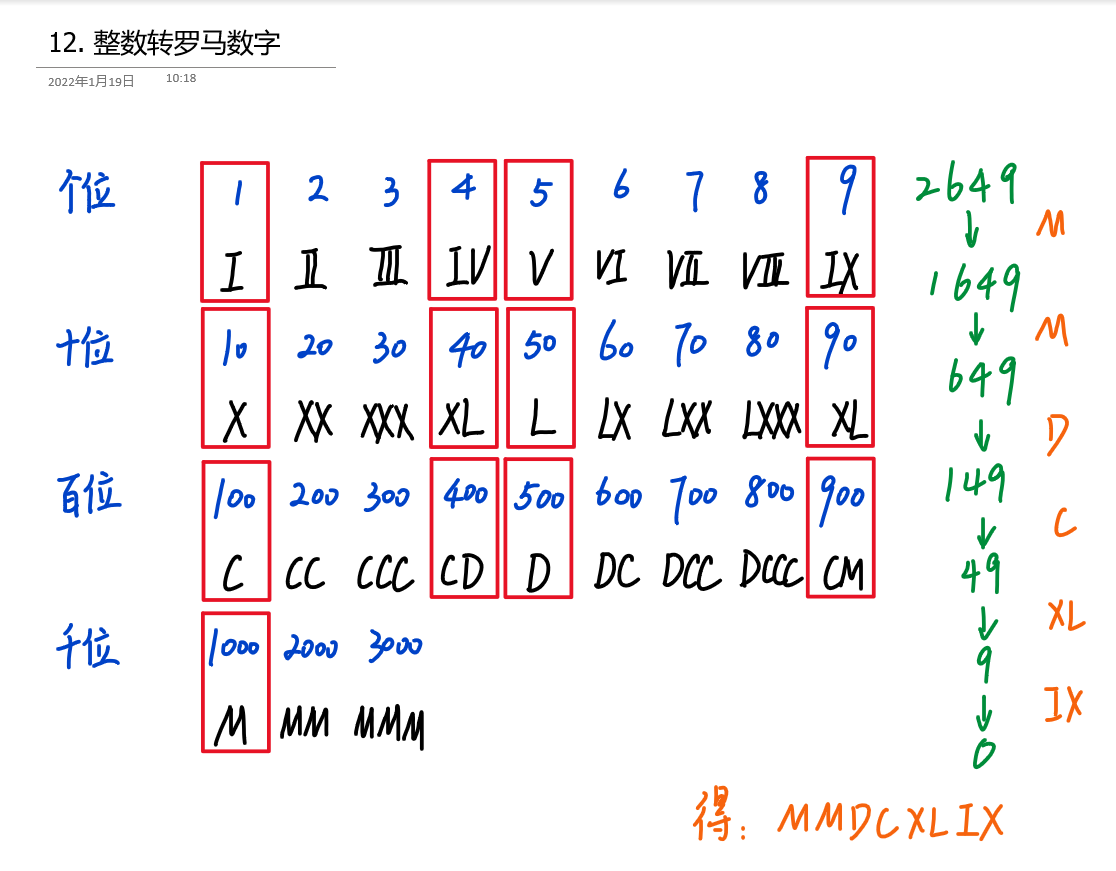 12. 整数转罗马数字
2022年1月19日 10:18
个位 1 2 3 4 5 6 7 8 9
I II III IV V VI VII VIII IX
十位 10 20 30 40 50 60 70 80 90
X XX XXX XL L LX LXX LXXX XL
百位 100 200 300 400 500 600 700 800 900
C CC CCC CD D DC DCC DCCC CM
千位 1000 2000 3000
M MM MMM
2649
↓ M
1649
↓ M
649
↓ D
149
↓ C
49
↓ XL
9
↓ IX
0
得: MMDCXLIX